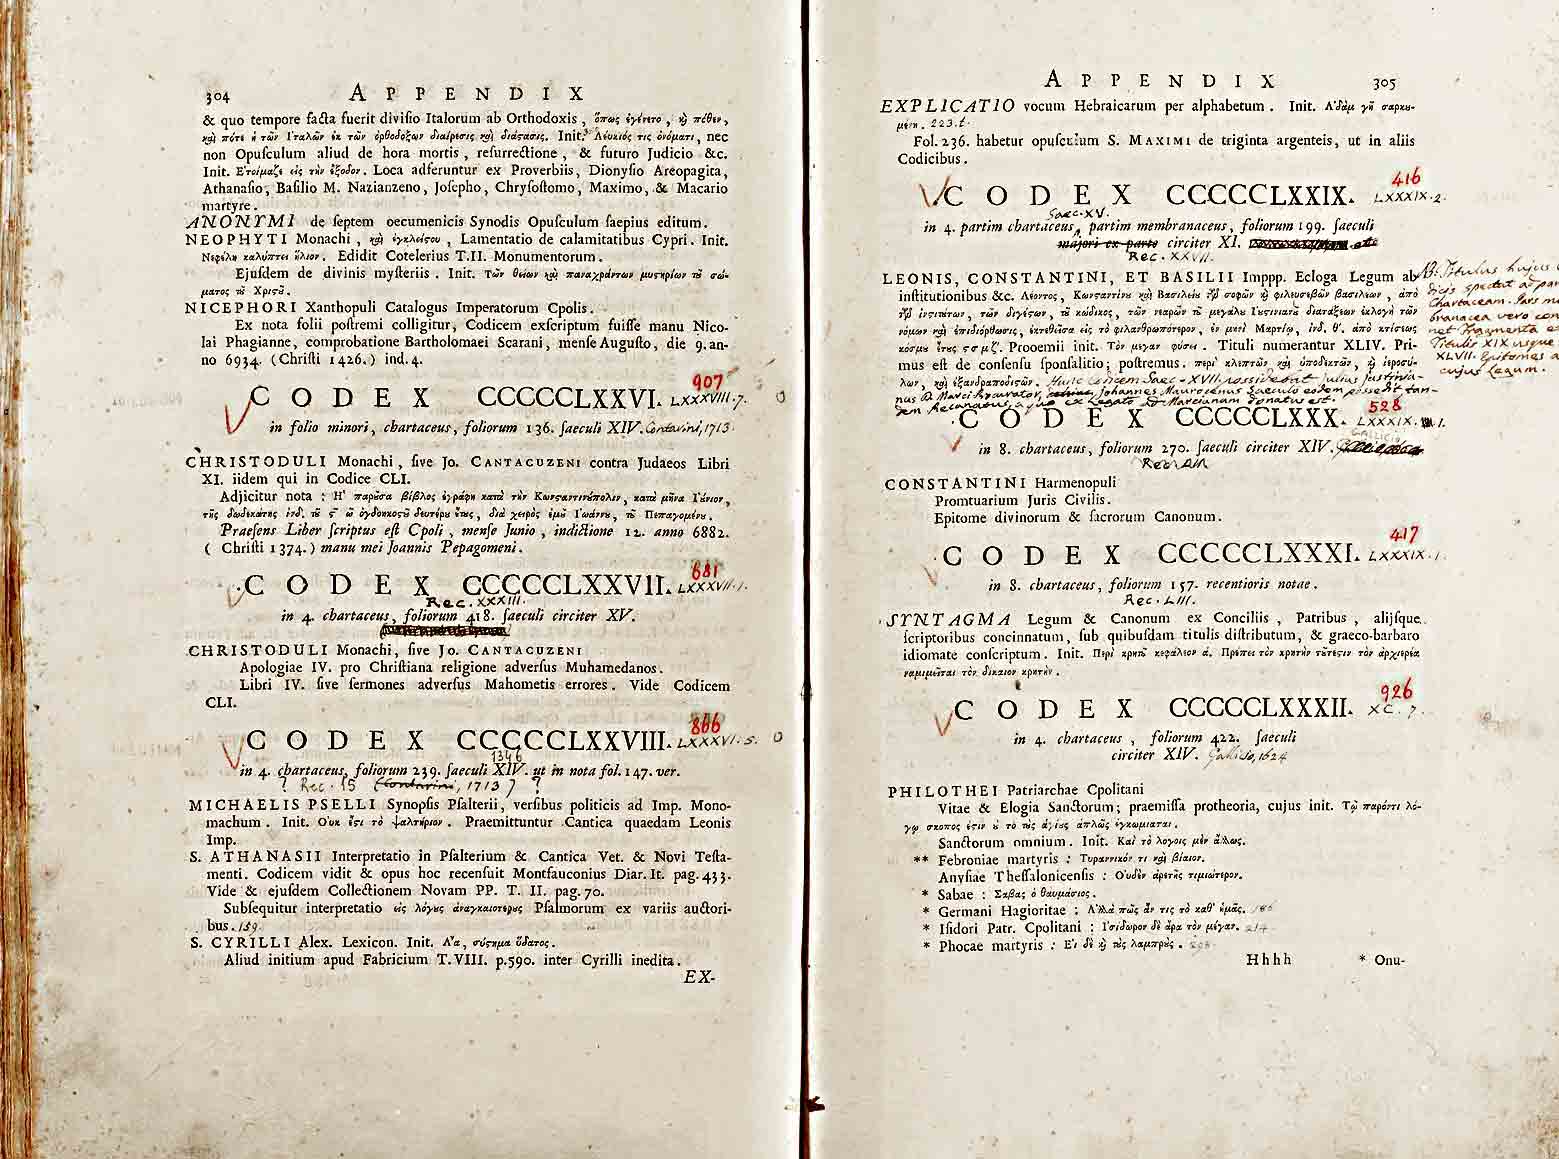 304 APPENDIX
& quo tempore facta fuerit divisio Italorum ab Orthodoxis, ὅπως ἐγένετο, καὶ πόθεν,
καὶ πότε ἡ τῶν Ἰταλῶν ἐκ τῶν ὀρθοδόξων διαίρεσις καὶ διάστασις. Init. Λεύκιός τις ὀνόματι, nec
non Opusculum aliud de hora mortis, resurrectione, & futuro Judicio &c.
Init. Ἑτοίμαζε εἰς τὴν ἔξοδον. Loca adferuntur ex Proverbiis, Dionysio Areopagita,
Athanasio, Basilio M. Nazianzeno, Josepho, Chrysostomo, Maximo, & Macario
martyre.
ANONYMI de septem oecumenicis Synodis Opusculum saepius editum.
NEOPHYTI Monachi, καὶ ἐγκλείστου, Lamentatio de calamitatibus Cypri. Init.
Νεφέλη καλύπτει ἥλιον. Edidit Cotelerius T.II. Monumentorum.
Ejusdem de divinis mysteriis. Init. Τῶν θείων καὶ παναχράντων μυστηρίων τοῦ σώ-
ματος τοῦ Χριστοῦ.
NICEPHORI Xanthopuli Catalogus Imperatorum Cpolis.
Ex nota folii postremi colligitur, Codicem exscriptum fuisse manu Nico-
lai Phagianne, comprobatione Bartholomaei Scarani, mense Augusto, die 9. an-
no 6934. (Christi 1426.) ind. 4.
907
CODEX CCCCCLXXVI. LXXXVIII.7.
in folio minori, chartaceus, foliorum 136. saeculi XIV. Contarini, 1713.
CHRISTODULI Monachi, sive Jo. CANTACUZENI contra Judaeos Libri
XI. iidem qui in Codice CLI.
Adjicitur nota: Ἡ παροῦσα βίβλος ἐγράφη κατὰ τὴν Κωνσταντινούπολιν, κατὰ μῆνα Ἰούνιον,
τῆς δωδεκάτης ἰνδ. τοῦ ς ω ὀγδοηκοστοῦ δευτέρου ἔτους, διὰ χειρὸς ἐμοῦ Ἰωάννου, τοῦ Πεπαγομένου.
Praesens Liber scriptus est Cpoli, mense Junio, indictione 12. anno 6882.
(Christi 1374.) manu mei Joannis Pepagomeni.
681
CODEX CCCCCLXXVII. LXXXVII.1.
Rec. XXXIII.
in 4. chartaceus, foliorum 418. saeculi circiter XV.
CHRISTODULI Monachi, sive Jo. CANTACUZENI
Apologiae IV. pro Christiana religione adversus Muhamedanos.
Libri IV. sive sermones adversus Mahometis errores. Vide Codicem
CLI.
866
CODEX CCCCCLXXVIII. LXXXVI.5.
1346
in 4. chartaceus, foliorum 239. saeculi XIV. ut in nota fol. 147. ver.
? Rec. 15 (Contarini, 1713) ?
MICHAELIS PSELLI Synopsis Psalterii, versibus politicis ad Imp. Mono-
machum. Init. Οὐκ ἔστι τὸ ψαλτήριον. Praemittuntur Cantica quaedam Leonis
Imp.
S. ATHANASII Interpretatio in Psalterium & Cantica Vet. & Novi Testa-
menti. Codicem vidit & opus hoc recensuit Montfauconius Diar. It. pag. 433.
Vide & ejusdem Collectionem Novam PP. T. II. pag. 70.
Subsequitur interpretatio εἰς λόγους ἀναγκαιοτέρους Psalmorum ex variis auctori-
bus. 159.
S. CYRILLI Alex. Lexicon. Init. Ἄα, σύστημα ὕδατος.
Aliud initium apud Fabricium T. VIII. p. 590. inter Cyrilli inedita.
EX-
APPENDIX 305
EXPLICATIO vocum Hebraicarum per alphabetum. Init. Ἀδὰμ γῆ σαρκου-
μένη. 223.t.
Fol. 236. habetur opusculum S. MAXIMI de triginta argenteis, ut in aliis
Codicibus.
416
CODEX CCCCCLXXIX. LXXXIX.2.
Saec. XV.
in 4. partim chartaceus, partim membranaceus, foliorum 199. saeculi
majori ex parte circiter XI.
Rec. XXVII.
LEONIS, CONSTANTINI, ET BASILII Imppp. Ecloga Legum ab
institutionibus &c. Λέοντος, Κωνσταντίνου καὶ Βασιλείου τῶν σοφῶν καὶ φιλευσεβῶν βασιλέων, ἀπὸ
τῶν ἰνστιτούτων, τῶν διγέστων, τοῦ κώδικος, τῶν νεαρῶν τοῦ μεγάλου Ἰουστινιανοῦ διατάξεων ἐκλογὴ τῶν
νόμων καὶ ἐπιδιόρθωσις, ἐκτεθεῖσα εἰς τὸ φιλανθρωπότερον, ἐν μηνὶ Μαρτίῳ, ἰνδ. θ'. ἀπὸ κτίσεως
κόσμου ἔτους ςσμζ'. Prooemii init. Τὸν μέγαν φύσει. Tituli numerantur XLIV. Pri-
mus est de consensu sponsalitio; postremus. περὶ κλεπτῶν, καὶ ὑποδεκτῶν, καὶ ἱεροσύ-
λων, καὶ ἐξανδραποδιστῶν. Hunc Codicem Saec. XVII. possidebant Julius Justinia-
nus D. Marci Procurator, Johannes Maurocenus Saeculo eodem possedit tan-
dem Recanatus, a quo ex Legato D. Marcianam donatus est.
NB. Titulus hujus
spectat ad par
Chartaceam. Pars m
branacea vero con
net Fragmenta e
Titulis XIX usque
XLVII. Epitomes a
cujus Legum.
528
CODEX CCCCCLXXX. LXXXIX. 1.
in 8. chartaceus, foliorum 270. saeculi circiter XIV.
CONSTANTINI Harmenopuli
Promtuarium Juris Civilis.
Epitome divinorum & sacrorum Canonum.
417
CODEX CCCCCLXXXI. LXXXIX.1.
in 8. chartaceus, foliorum 157. recentioris notae.
Rec. LIII.
SYNTAGMA Legum & Canonum ex Conciliis, Patribus, alijsque
scriptoribus concinnatum, sub quibusdam titulis distributum, & graeco-barbaro
idiomate conscriptum. Init. Περὶ κριτοῦ κεφάλεον ά. Πρέπει τὸν κριτὴν τούτεστιν τὸν ἀρχιερέα
ναμιμεῖται τὸν δίκαιον κριτήν.
926
CODEX CCCCCLXXXII. XC.7.
in 4. chartaceus, foliorum 422. saeculi
circiter XIV. Gallicio, 1624
PHILOTHEI Patriarchae Cpolitani
Vitae & Elogia Sanctorum; praemissa protheoria, cujus init. Τῷ παρόντι λό-
γῳ σκοπὸς ἐστιν οὐ τοὺς ἁγίους ἁπλῶς ἐγκωμιάται.
Sanctorum omnium. Init. Καὶ τὸ λόγοις μὲν ἄθλως.
** Febroniae martyris: Τυραννικόν τι καὶ βίαιον.
Anysiae Thessalonicensis: Οὐδὲν ἀρετῆς τιμιώτερον.
* Sabae: Σάβας ὁ θαυμάσιος.
* Germani Hagioritae: Ἀλλὰ πῶς ἄν τις τὸ καθ' ἡμᾶς. 186
* Isidori Patr. Cpolitani: Ἰσίδωρον δὲ ἄρα τὸν μέγαν. 214
* Phocae martyris: Εἰ δὲ καὶ τοὺς λαμπρούς.
Hhhh * Onu-